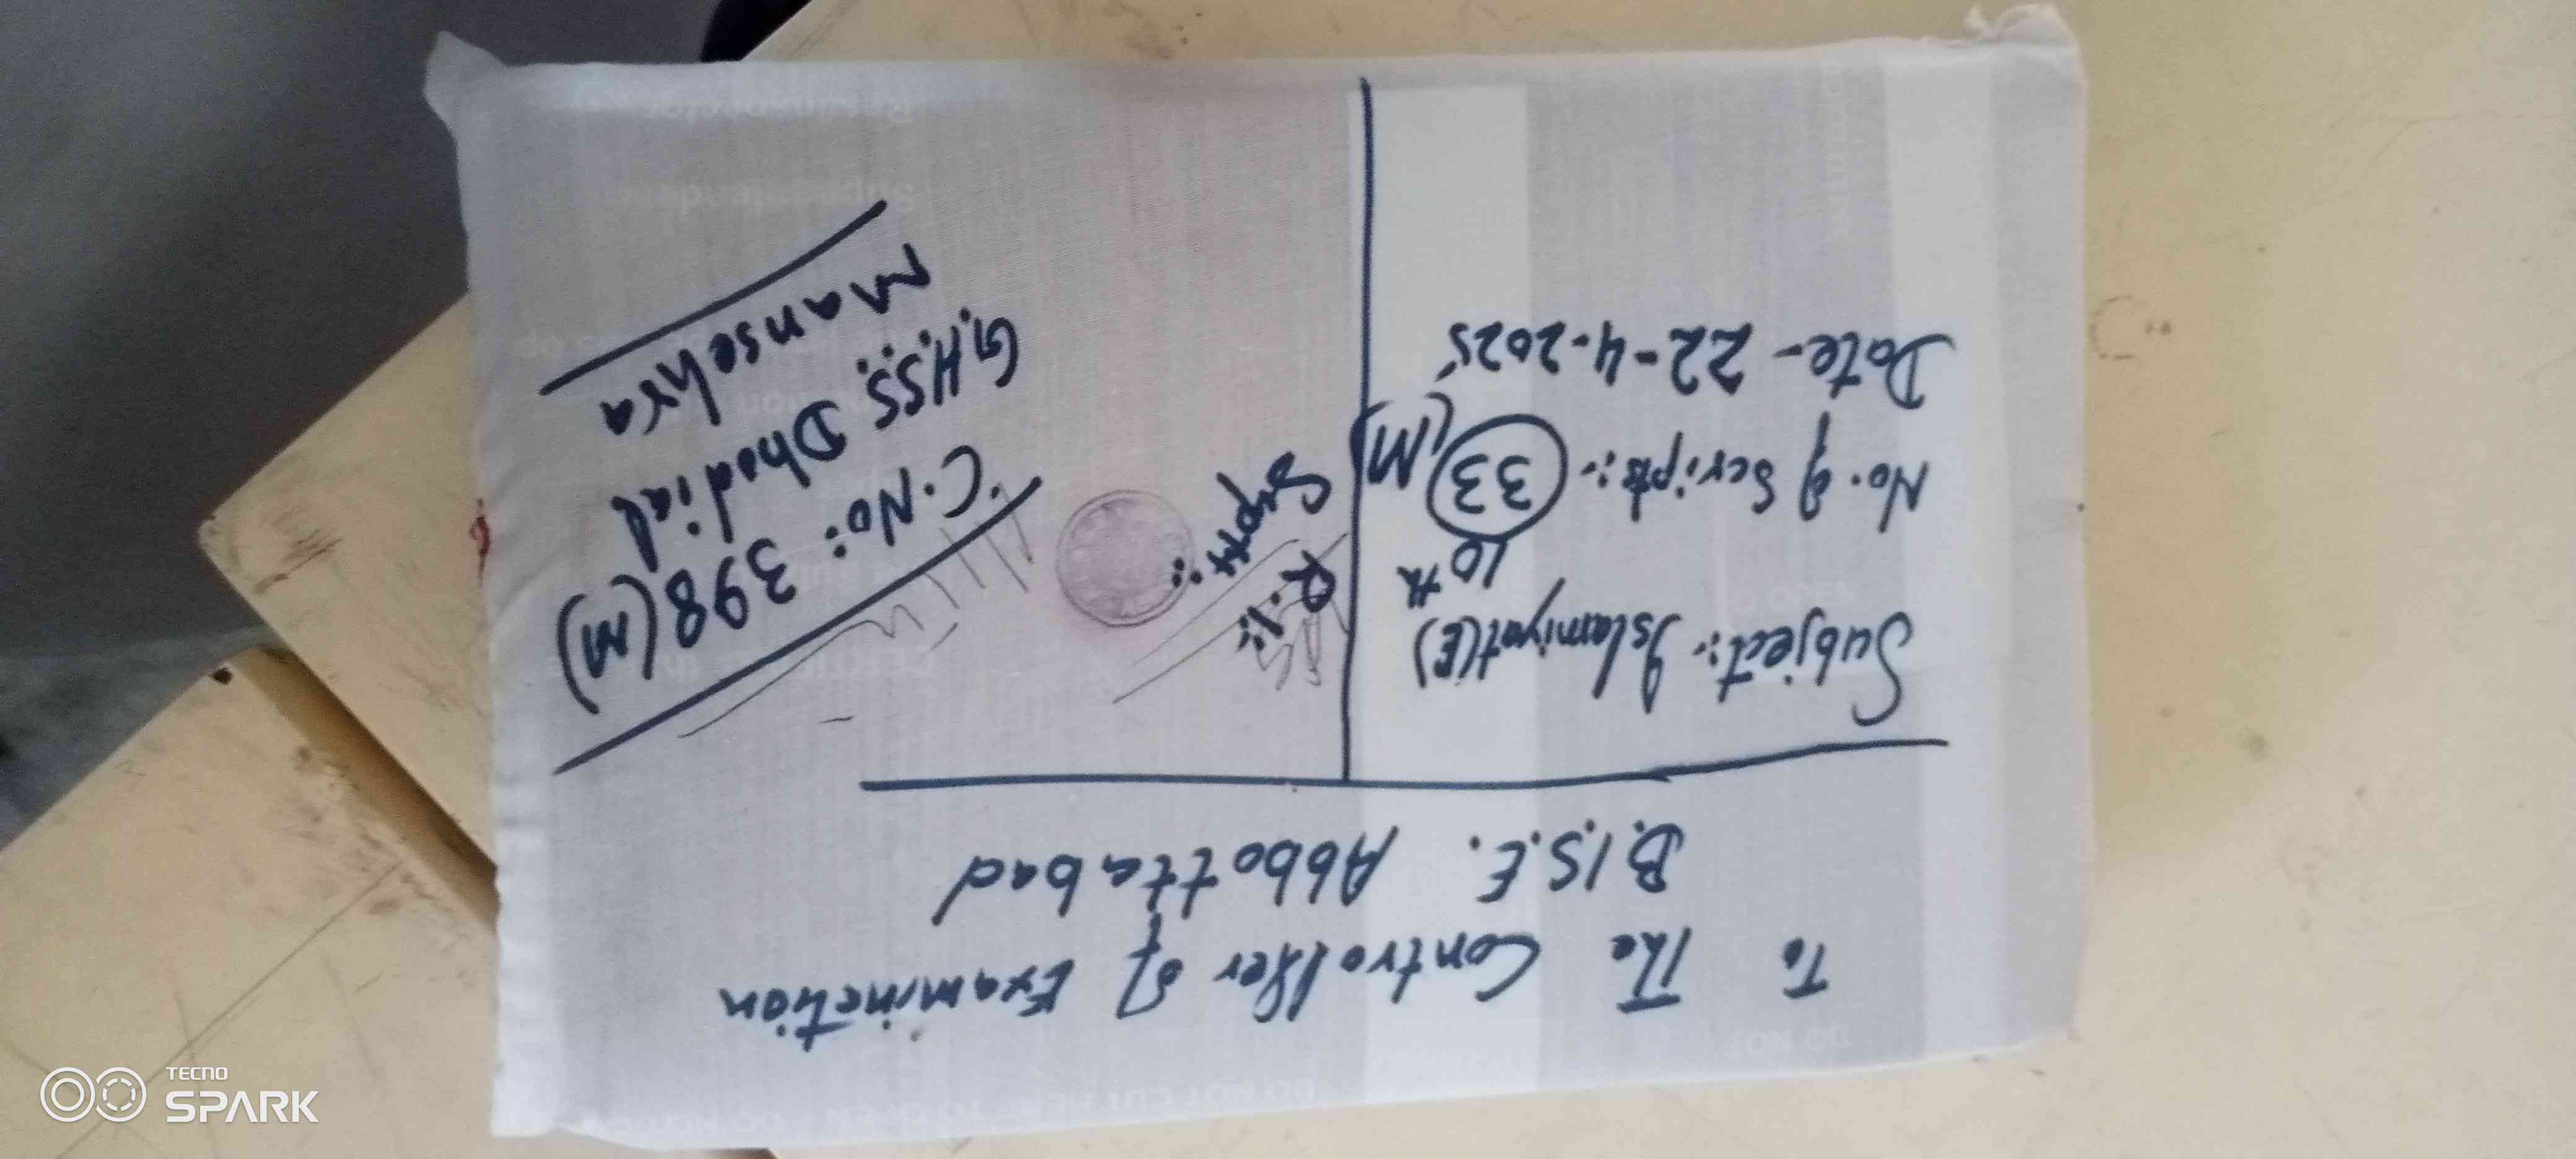 To The Controller of Examination
B.I.S.E. Abbottabad
Subject:- Islamiyat(E)
10th
No. of Scripts:- 33 (M)
Date- 22-4-2025
R.I:-
Supdt:-
C.No:- 398(M)
G.H.S.S. Dhodial
Mansehra
TECNO
SPARK